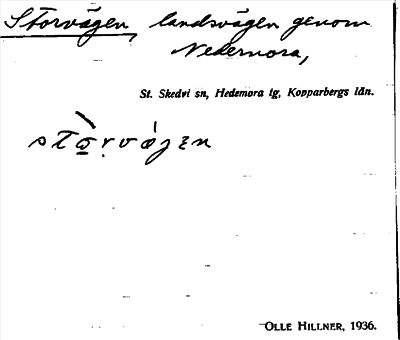 Storvägen, landsvägen genom
Nedernora,
St. Skedvi sn, Hedemora tg, Kopparbergs län.
OLLE HILLNER, 1936.